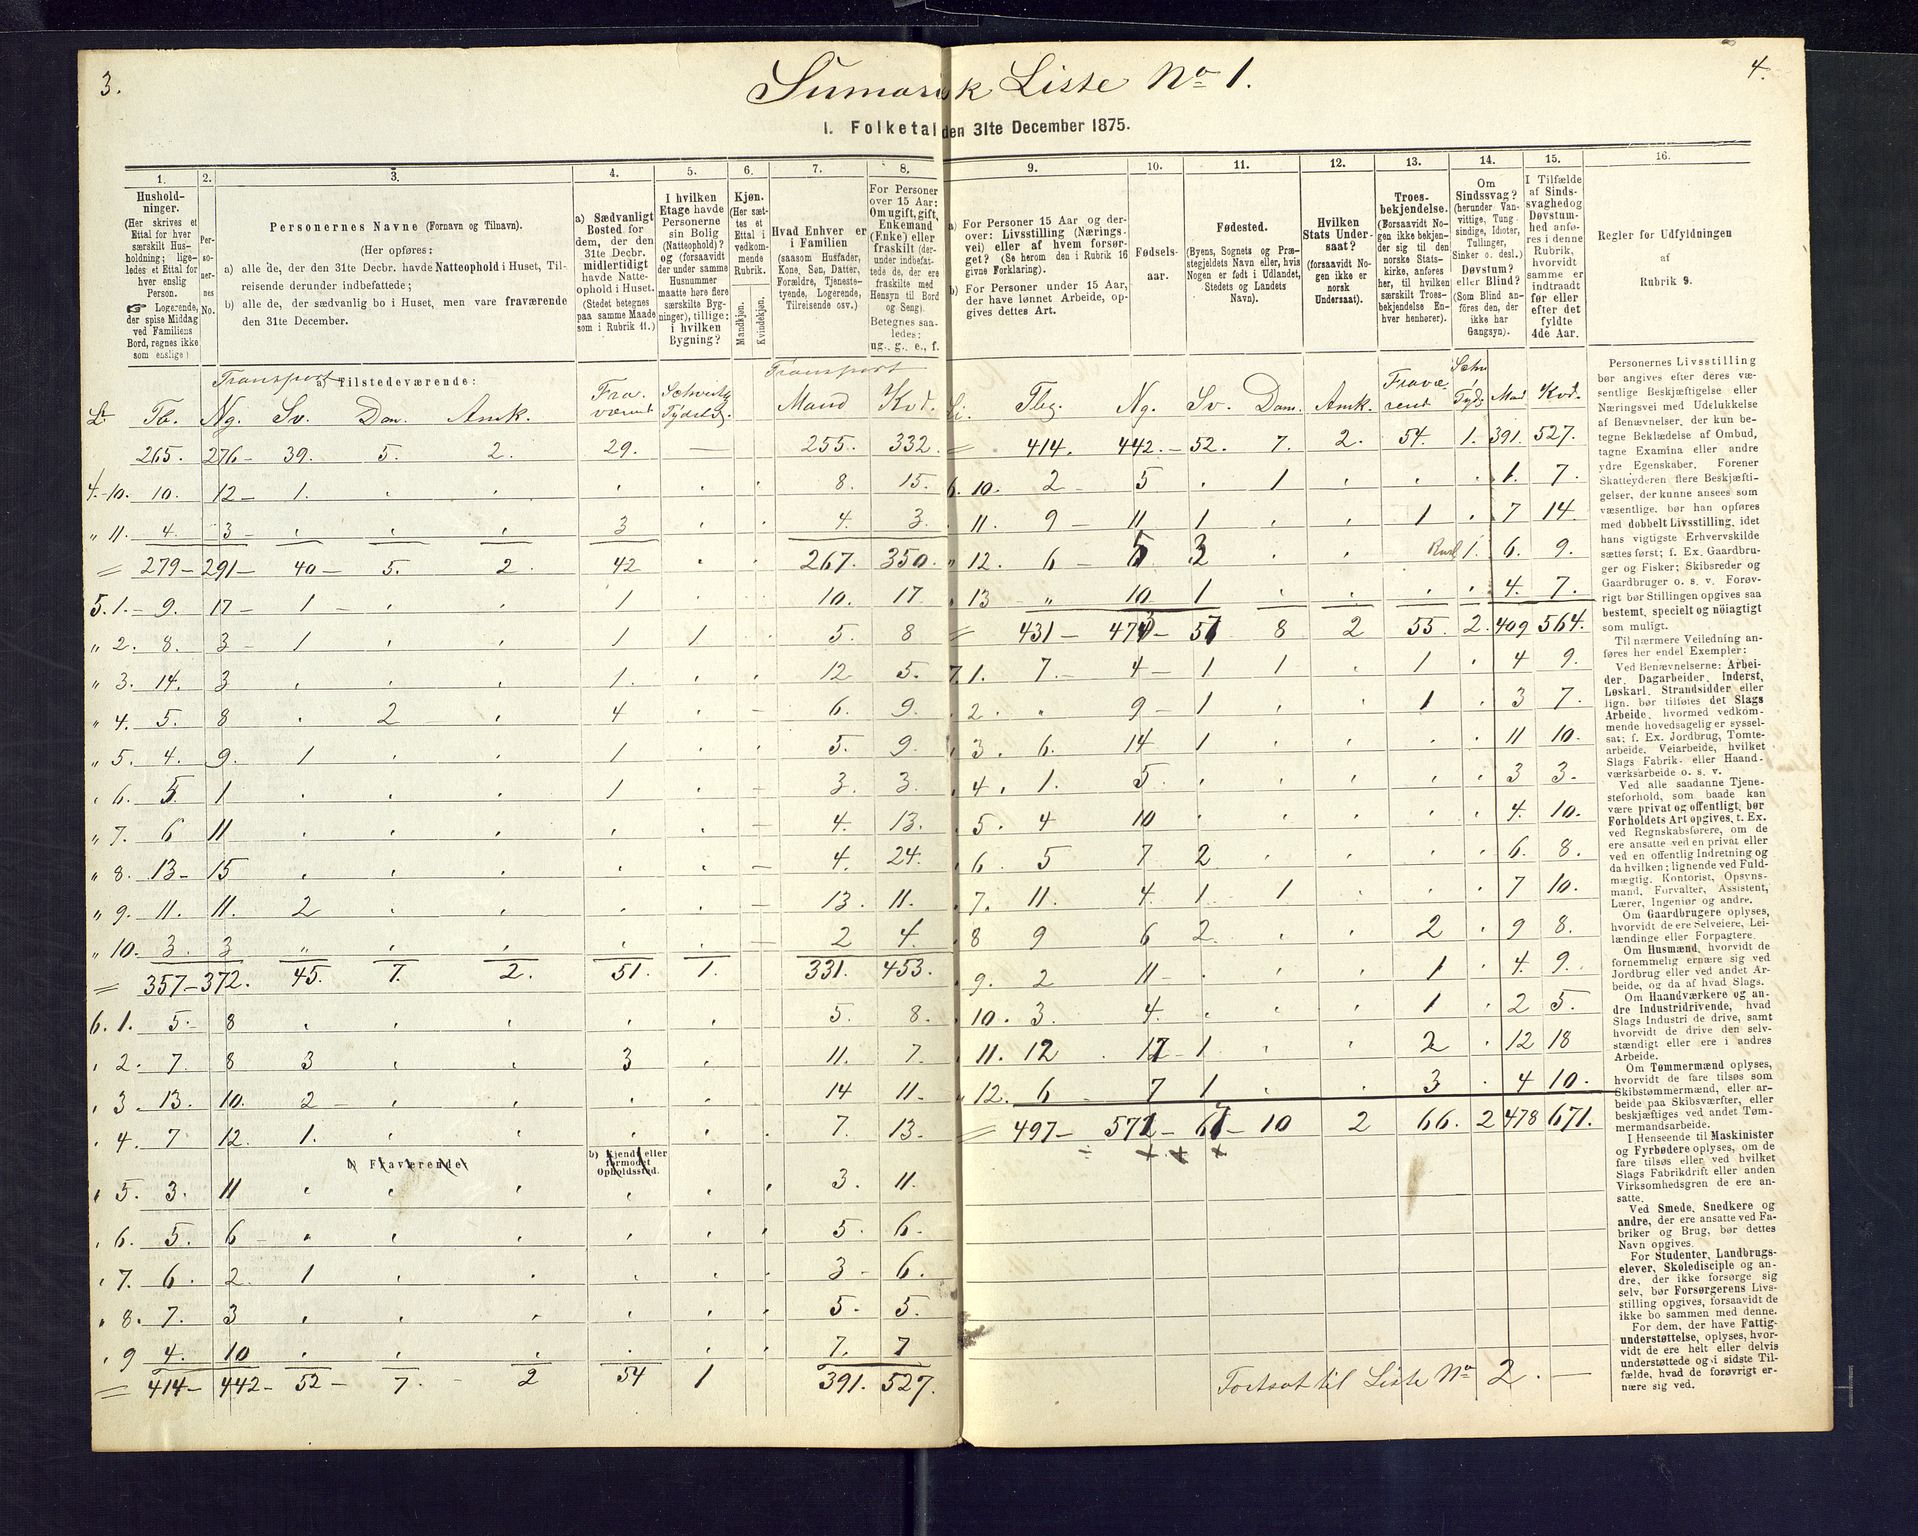 3.
Sumarisk Liste No 1.
4.
1. Folketal den 31te December 1875.
1. 2. 3. 4. 5. 6. 7. 8. 9. 10. 11. 12. 13. 14. 15. 16.
Hushold-
ninger.
(Her skrives et
Ettal for hver
særskilt Hus-
holdning; lige-
ledes et Ettal for
hver enslig
Person.
☞ Logerende,
der spise Middag
ved Familiens
Bord, regnes ikke
som enslige)
Per-
so-
ner-
nes
No.
Personernes Navne (Fornavn og Tilnavn).
(Her opføres:
a) alle de, der den 31te Decbr. havde Natteophold i Huset, Til-
reisende derunder indbefattede;
b) alle de, der sædvanlig bo i Huset, men vare fraværende
den 31te December.
a) Sædvanligt
Bosted for
dem, der den
31te Decbr.
midlertidigt
havde Natte-
ophold i Huset.
(Stedet betegnes
paa samme Maade
som i Rubrik 11.)
I hvilken
Etage havde
Personerne
sin Bolig
(Natteophold)?
og (forsaavidt
der under samme
Husnummer
maatte høre flere
særskilte Byg-
ninger), tillige:
i hvilken
Bygning?
Kjøn.
(Her sæt-
tes et
Ettal i
vedkom-
mende
Rubrik.
Mandkjøn.
Kvindekjøn.
Hvad Enhver er
i Familien
(saasom Husfader,
Kone, Søn, Datter,
Forældre, Tjeneste-
tyende, Logerende,
Tilreisende osv.)
For Personer
over 15 Aar:
Om ugift, gift,
Enkemand
(Enke) eller
fraskilt (der-
under indbefat-
tede de, der ere
fraskilte med
Hensyn til Bord
og Seng).
Betegnes saa-
ledes:
ug., g., e., f.
a) For Personer 15 Aar og der-
over: Livsstilling (Nærings-
vei) eller af hvem forsør-
get? (Se herom den i Rubrik 16
givne Forklaring).
b) For Personer under 15 Aar,
der have lønnet Arbeide, op-
gives dettes Art.
Fødsels-
aar.
Fødested.
(Byens, Sognets og Præ-
stegjeldets Navn eller, hvis
Nogen er født i Udlandet,
Stedets og Landets
Navn).
Hvilken
Stats Under-
saat?
(forsaavidt No-
gen ikke er
norsk
Undersaat).
Troes-
bekjendelse.
(Forsaavidt No-
gen ikke bekjen-
der sig til den
norske Stats-
kirke, anføres
her, til hvilken
særskilt Troes-
bekjendelse En-
hver henhører).
Om
Sindssvag?
(herunder Van-
vittige, Tung-
sindige, Idioter,
Tullinger,
Sinker o. desl.)
Døvstum?
eller Blind?
(Som Blind an-
føres den, der
ikke har
Gangsyn).
I Tilfælde
af Sinds-
svaghed og
Døvstum-
hed anfø-
res i denne
Rubrik,
hvorvidt
samme er
indtraadt
før eller
efter det
fyldte
4de Aar.
Regler for Udfyldningen
af
Rubrik 9.
Transport a) Tilstedeværende: Transport
Li Tb. Ng. Sv. Dan. Amk. Fra- værend Mand Kvd. Li. Tbg. Ng. Sv. Dan. Amk. Fravæ- rend Mad Kvd.
265. 276 – 39. 5. 2. 29. — 255. 332.
4.-10. 10. 12 – 1. 8. 15.
" 11. 4. 3 – 3 4. 3.
279 – 291 – 40 – 5. 2. 42 267. 350.
5. 1. – 9. 17 – 1 – 1 10. 17
" 2. 8. 3 – 1 1 1 5. 8
" 3. 14. 3 1. 12 5.
" 4. 5. 8 2 4 6. 9.
" 5. 4. 9. 1 1 5. 9.
" 6. 5 1 1 3. 3.
" 7. 6 11 4. 13.
" 8. 13 – 15 4. 24.
" 9. 11. 11. 2 13. 11.
" 10. 3. 3 " 2 4.
357 – 372. 45. 7. 2. 51. 1. 331. 453.
6. 1. 5. 8 5. 8.
" 2. 7. 8 3 3 11. 7.
" 3. 13. 10. 2 – 14 11.
" 4. 7 12. 1. 7. 13.
b) Fraværende b) Kjendt eller
formodet
Opholdssted.
" 5. 3. 11 3. 11.
" 6. 5. 6 – 5. 6.
" 7. 6. 2. 1 3 – 6.
" 8. 7. 3 5. 5.
" 9 4. 10 7. 7
414 – 442 – 52 – 7. – 2 54 1 391. 527.
414. 442. – 52. 7. 2. 54. 1. 391. 527.
6. 10. 2 5 1 1. 7.
11. 9 – 11 1 1 7 14.
" 12. 6 – 5 3 1. 6. 9.
" 13 " 10 1 4. 7.
431 – 473 – 57 8 2 55. 2. 409 564.
7. 1. 7. – 4 – 1 1 1 4 9.
2. 9 – 1 1 3 7.
3. 6. 14 1 11 10.
4. 1. 5. 3 3.
5. 4 10 4. 10.
6. 5 7 2 6. 8.
7. 11. 4. 1 1 7 10.
8 9 6 2. 2 9 8.
9. 2 11 – 1 4. 9.
10. 3. 4. 1 2 5.
11. 12 17 – 1 2 12 18
" 12. 6 7 1 3 4 10.
497 – 571 – 67 – 10 2 66. 2 478 671.
Fortsat til Liste No 2. —
Personernes Livsstilling
bør angives efter deres væ-
sentlige Beskjæftigelse eller
Næringsvei med Udelukkelse
af Benævnelser, der kun be-
tegne Beklædelse af Ombud,
tagne Examina eller andre
ydre Egenskaber. Forener
Skatteyderen flere Beskjæfti-
gelser, der kunne ansees som
væsentlige, bør han opføres
med dobbelt Livsstilling, idet
hans vigtigste Erhvervskilde
sættes først; f. Ex. Gaardbru-
ger og Fisker; Skibsreder og
Gaardbruger o. s. v. Forøv-
rigt bør Stillingen opgives saa
bestemt, specielt og nöiagtigt
som muligt.
Til nærmere Veiledning an-
føres her endel Exempler:
Ved Benævnelserne: Arbei-
der, Dagarbeider, Inderst,
Løskarl, Strandsidder eller
lign. bør tilføies det Slags
Arbeide, hvormed vedkom-
mende hovedsagelig er syssel-
sat; f. Ex. Jordbrug, Tomte-
arbeide, Veiarbeide, hvilket
Slags Fabrik- eller Haand-
værksarbeide o. s. v.
Ved alle saadanne Tjene-
steforhold, som baade kan
være privat og offentligt, bør
Forholdets Art opgives, t. Ex.
ved Regnskabsførere, om de
ere ansatte ved en privat eller
ved en offentlig Indretning og
da hvilken; lignende ved Fuld-
mægtig, Kontorist, Opsyns-
mand, Forvalter, Assistent,
Lærer, Ingeniør og andre.
Om Gaardbrugere oplyses,
hvorvidt de ere Selveiere, Lei-
lændinge eller Forpagtere.
Om Husmænd, hvorvidt de
fornemmelig ernære sig ved
Jordbrug eller ved andet Ar-
beide, og da af hvad Slags.
Om Haandværkere og an-
dre Industridrivende, hvad
Slags Industri de drive, samt
hvorvidt de drive den selv-
stændigt eller ere i andres
Arbeide.
Om Tømmermænd oplyses,
hvorvidt de fare tilsøs som
Skibstømmermænd, eller ar-
beide paa Skibsværfter, eller
beskjæftiges ved andet Tøm-
mermandsarbeide.
I Henseende til Maskinister
og Fyrbødere oplyses, om de
fare tilsøs eller ved hvilket
Slags Fabrikdrift eller anden
Virksomhedsgren de ere an-
satte.
Ved Smede, Snedkere og
andre, der ere ansatte ved Fa-
briker og Brug, bør dettes
Navn opgives.
For Studenter, Landbrugs-
elever, Skoledisciple og an-
dre, der ikke forsørge sig
selv, bør Forsørgerens Livs-
stilling opgives, forsaavidt de
ikke bo sammen med denne.
For dem, der have Fattig-
understøttelse, oplyses, hvor-
vidt de ere helt eller delvis
understøttede og i sidste Til-
fælde, hvad de forøvrigt er-
nære sig ved.